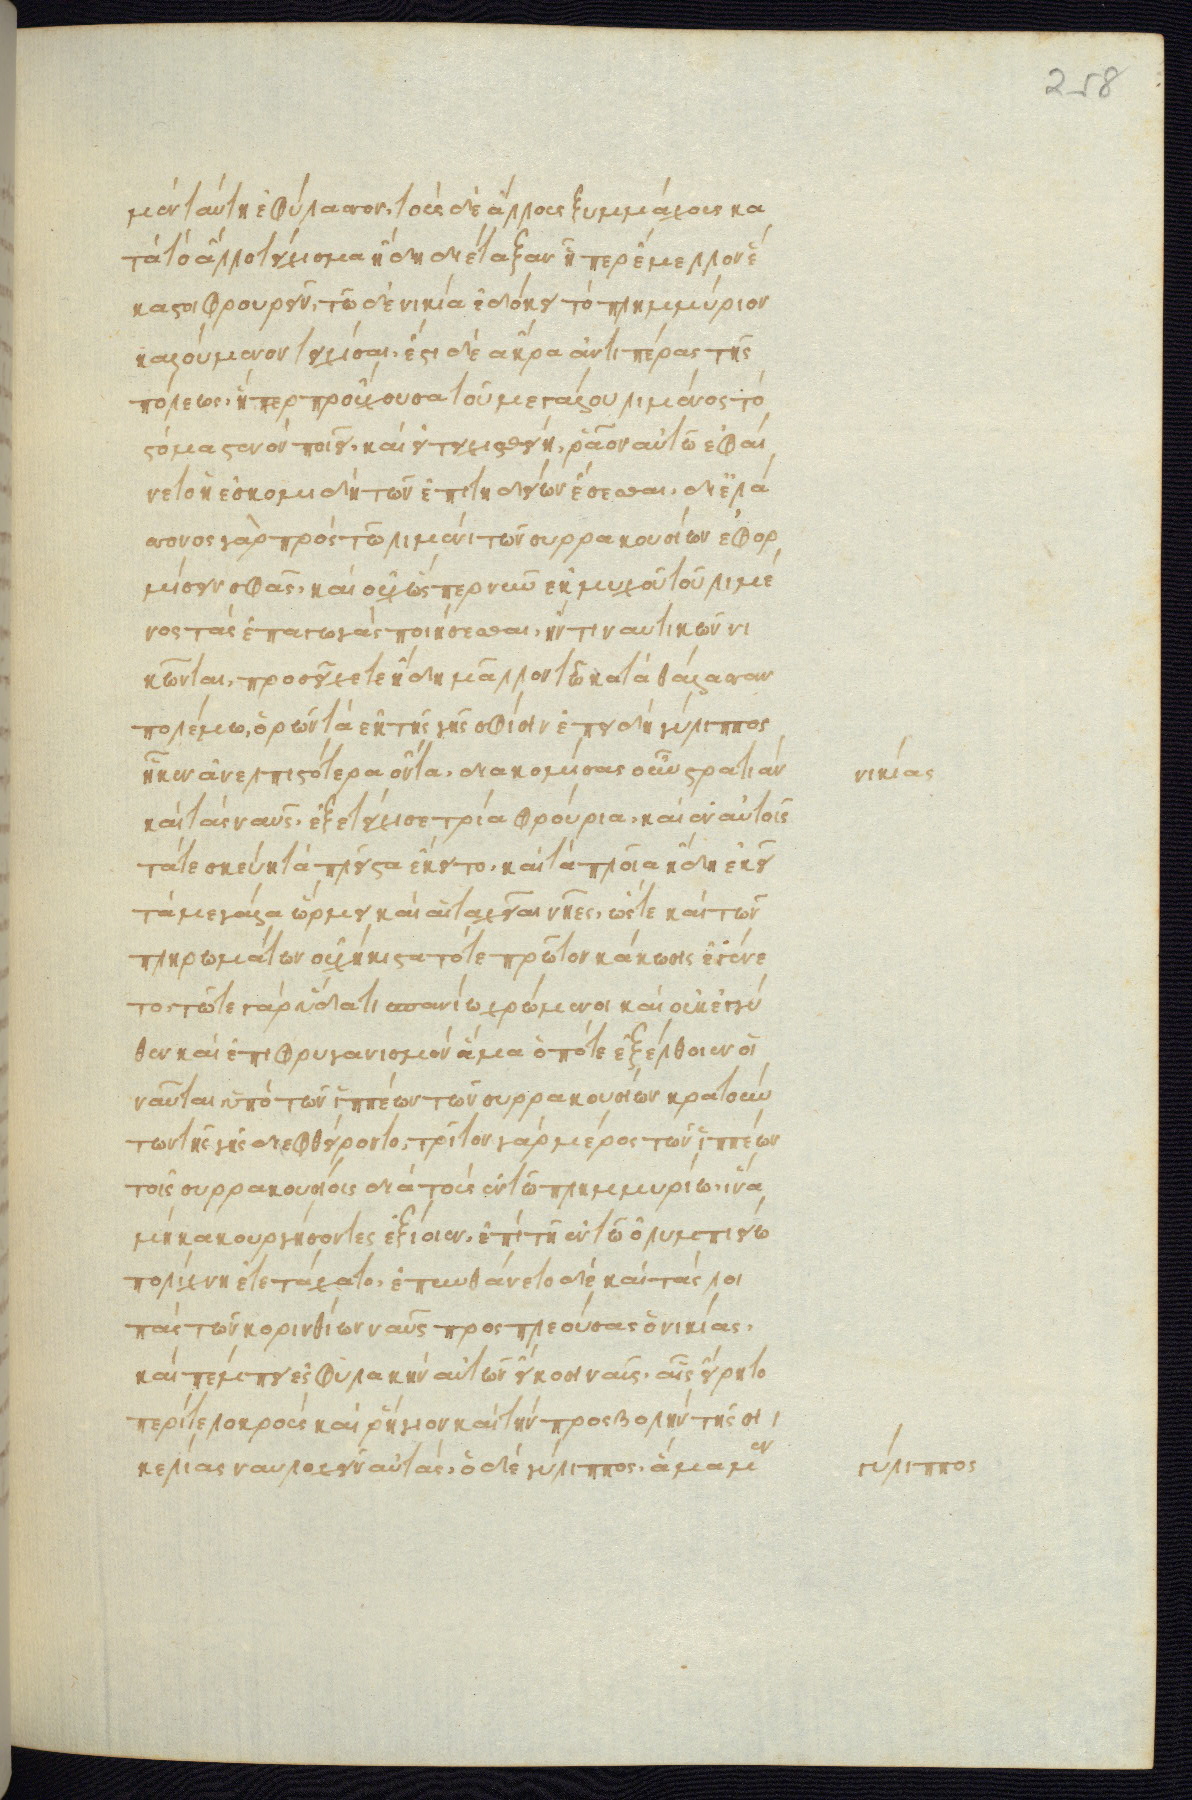 258
μὲν ταύτη ἐφύλασσον, τοὺς δὲ ἄλλους ξυμμάχους κα
τὰ τὸ ἄλλο τείχισμα ἤδη διέταξαν ᾗπερ ἔμελλον ἕ
καστοι φρουρεῖν, τῶ δὲ νικία ἐδόκει τὸ πλημμύριον
καλούμενον τειχίσαι, ἔστι δὲ ἄκρα ἀντιπέρας τῆς
πόλεως, ἥπερ προὔχουσα τοῦ μεγάλου λιμένος τὸ
στόμα στενὸν ποιεῖ, καὶ εἰ τειχισθείη, ῥᾶον αὐτῶ ἐφαί
νετο ἡ ἐσκομιδὴ τῶν ἐπιτηδείων ἔσεσθαι, δι ἐλά
σσονος γὰρ πρὸς τῶ λιμένι τῶν συρρακουσίων ἐφορ
μήσειν σφᾶς, καὶ οὐχ ὥσπερ νῦν ἐκ μυχοῦ τοῦ λιμέ
νος τὰς ἐπαγωγὰς ποιήσεσθαι, ἤν τι ναυτικῶν κι
νῶνται, προσεῖχέ τε ἤδη μᾶλλον τῶ κατὰ θάλασσαν
πολέμω, ὁρῶν τὰ ἐκ τῆς γῆς σφίσιν ἐπειδὴ γύλιππος
ἧκεν ἀνελπιστότερα ὄντα, διακομίσας οὖν στρατιὰν
καὶ τὰς ναῦς, ἐξετείχισε τρία φρούρια, καὶ ἐν αὐτοῖς
τά τε σκεύη τὰ πλεῖστα ἔκειτο, καὶ τὰ πλοῖα ἤδη ἐκεῖ
τὰ μεγάλα ὥρμει καὶ αἱ ταχεῖαι νῆες, ὥστε καὶ τῶν
πληρωμάτων οὐχ ἥκιστα τότε πρῶτον κάκωσις ἐγένε
το, τῶ τε γὰρ ὕδατι σπανίω χρώμενοι καὶ οὐκ ἐγγύ
θεν καὶ ἐπὶ φρυγανισμὸν ἅμα ὁπότε ἐξέλθοιεν οἱ
ναῦται ὑπὸ τῶν ἱππέων τῶν συρρακουσίων κρατούν
των τῆς γῆς διεφθείροντο, τρίτον γὰρ μέρος τῶν ἱππέων
τοῖς συρρακουσίοις διὰ τοὺς ἐν τῶ πλημμυρίω, ἵνα
μὴ κακουργήσοντες ἐξίοιεν, ἐπὶ τῆ ἐν τῶ ὀλυμπιείω
πολίχνη ἐτετάχατο, ἐπυνθάνετο δὲ καὶ τὰς λοι
πὰς τῶν κορινθίων ναῦς προσπλεούσας ὁ νικίας,
καὶ πέμπει ἐς φυλακὴν αὐτῶν εἴκοσι ναῦς, αἷς εἴρητο
περί τε λοκροὺς καὶ ῥήγιον καὶ τὴν προσβολὴν τῆς σι
κελίας ναυλοχεῖν αὐτάς, ὁ δὲ γύλιππος, ἅμα μὲν
νικίας
γύλιππος